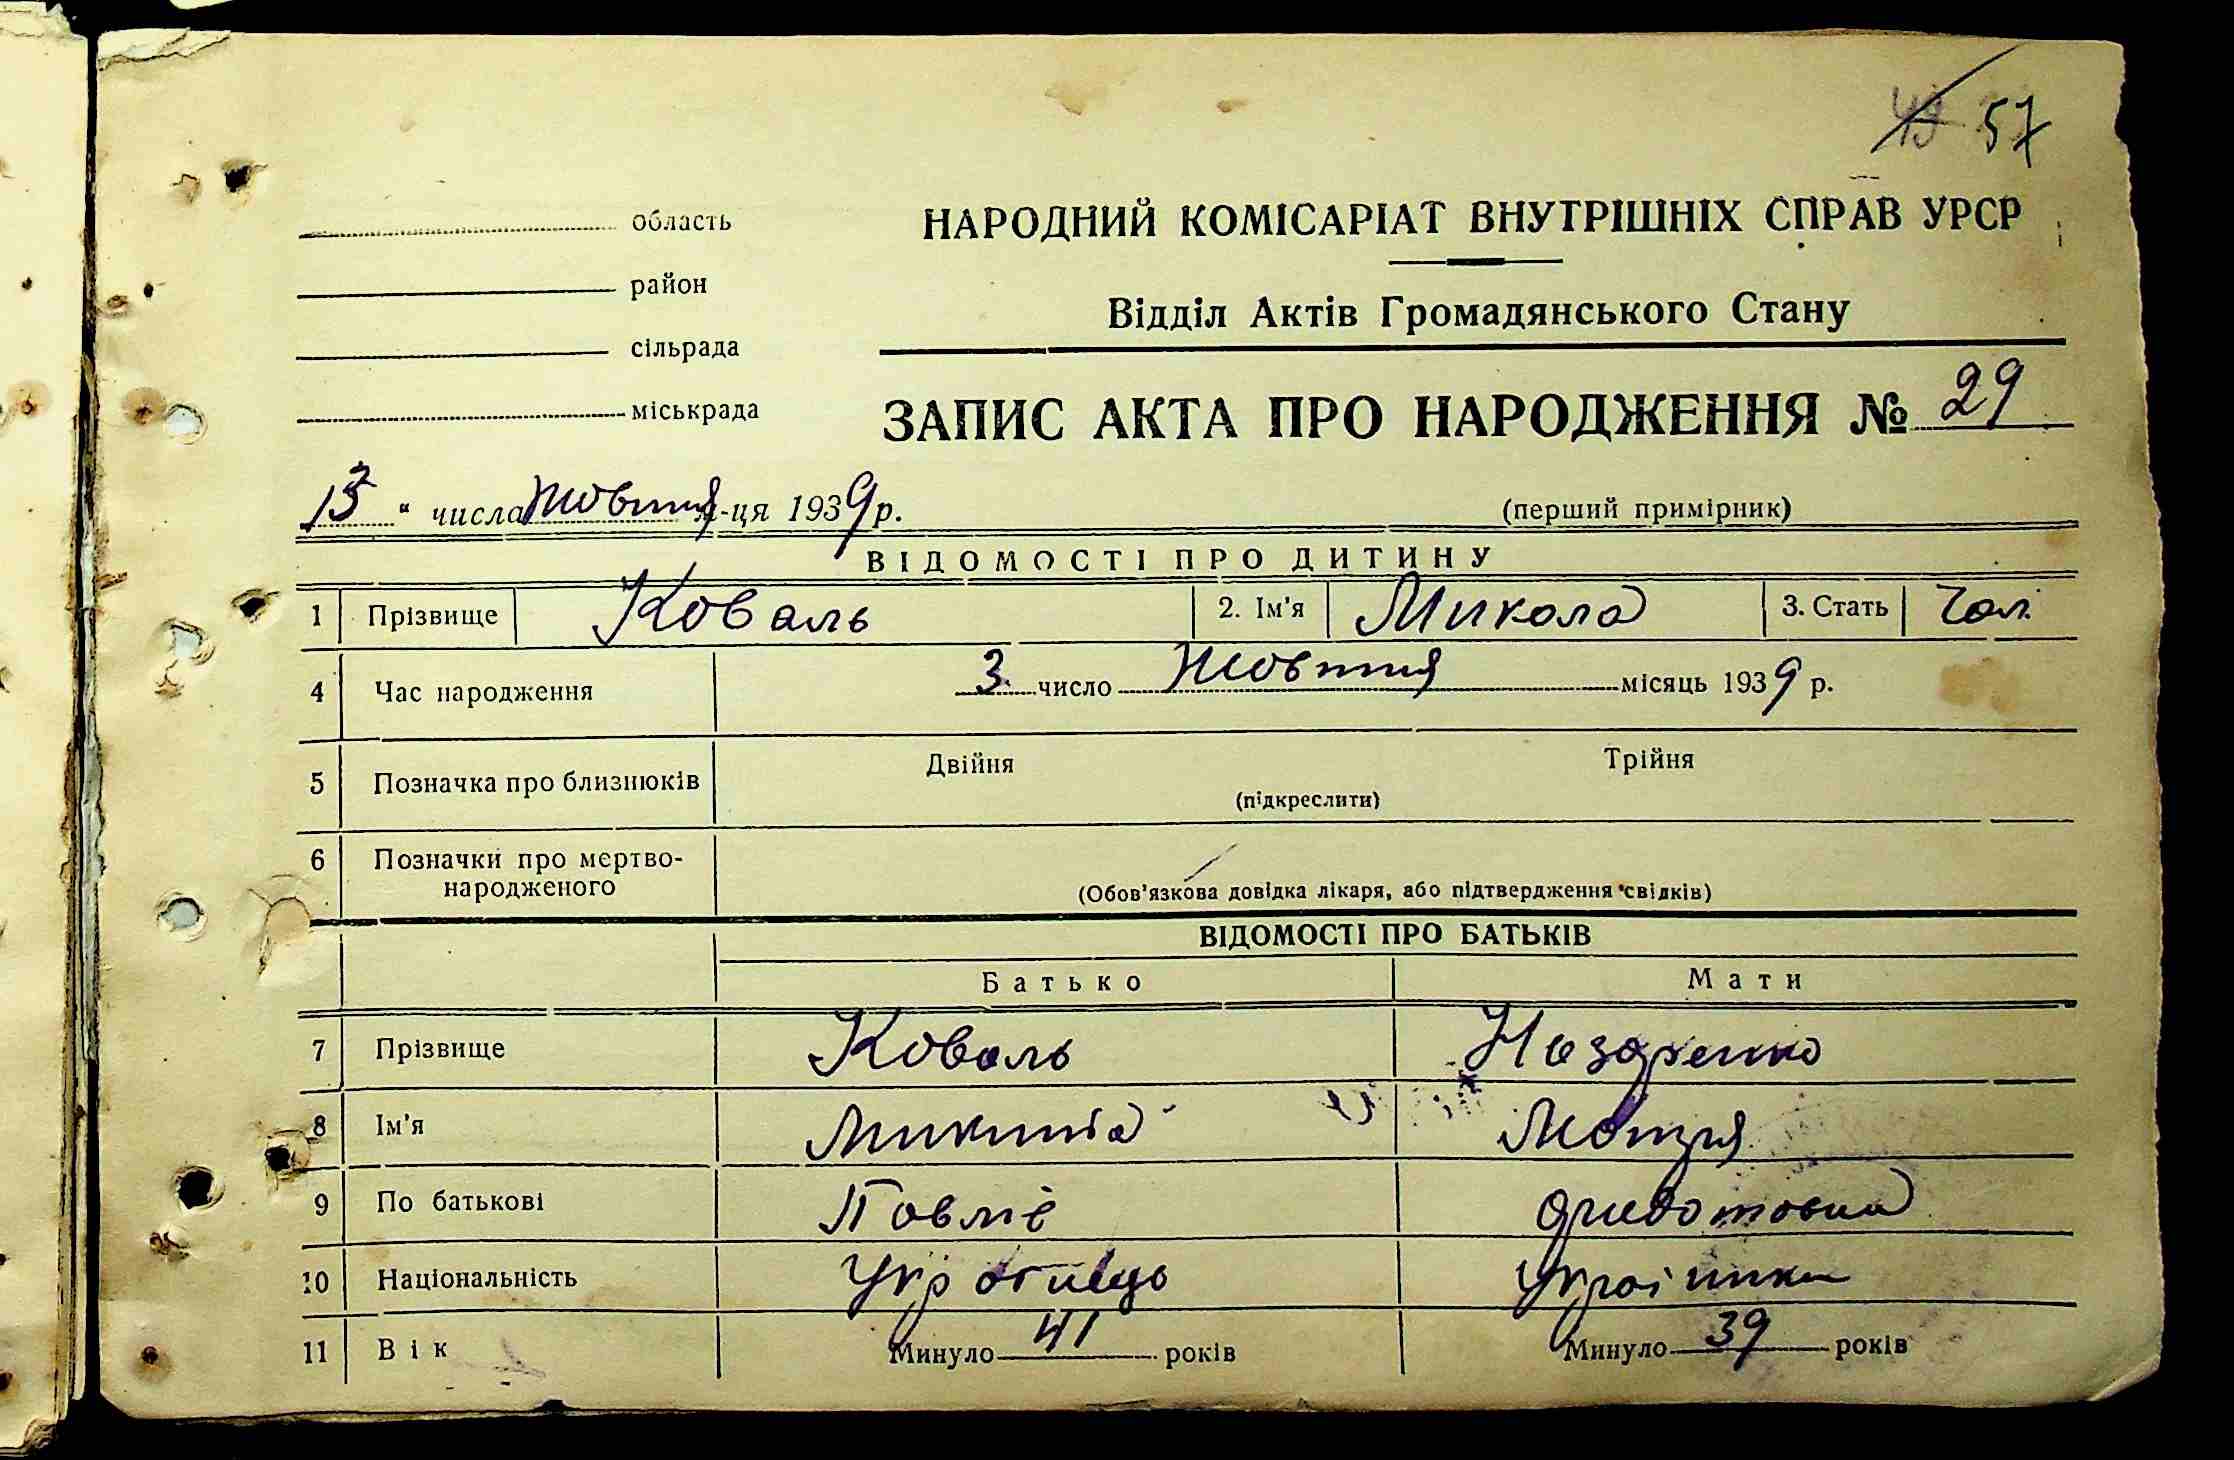 49 57
область
район
сільрада
міськрада
НАРОДНИЙ КОМІСАРІАТ ВНУТРІШНІХ СПРАВ УРСР
Відділ Актів Громадянського Стану
ЗАПИС АКТА ПРО НАРОДЖЕННЯ № 29
13 " числа Жовтня м-ця 1939 р.
(перший примірник)
ВІДОМОСТІ ПРО ДИТИНУ
1 Прізвище Коваль 2. Ім'я Микола 3. Стать Чол.
4 Час народження 3 число Жовтня місяць 1939 р.
5 Позначка про близнюків Двійня Трійня
(підкреслити)
6 Позначки про мертво-
народженого
(Обов'язкова довідка лікаря, або підтвердження свідків)
ВІДОМОСТІ ПРО БАТЬКІВ
Батько Мати
7 Прізвище Коваль Назаренко
8 Ім'я Микита Мотря
9 По батькові Павлів
10 Національність Українець Українка
11 Вік Минуло 41 років Минуло 39 років